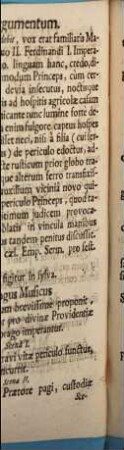 gumentum.
debit, vox erat familiaris Ma-
vo II. Ferdinandi I. Impera-
o. linguam hanc, credo, di-
modum Princeps, cum cer-
devia insecutus, noctuque
is ad hospitis agricolæ casam
ticante tunc lumine forte de-
a enim fulgore captus hospes
illet neci, nisi à filia (cui ser-
us) de periculo edoctus, ad-
te rusticum prior globo tra-
que alterum ferro transfixis-
roxillum vicinia novo qui-
periculo Princeps, quod ta-
itimum judicem provoca-
blatis in vincula manibus
us tandem penitus discussit.
cæl. Emp. Serm. pro fest.
figitur in sylva.
ogus Musicus
am brevissimè proponit,
pro divinæ Providentiæ
orago imperantur.
Scena I.
ravi vitæ periculo functus,
ncurrit.
Scena II.
Prætore pagi, custodiæ
&c-